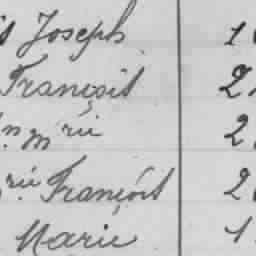 Joseph 1
François 2
n m rie 2
rie François 2
Marie 1